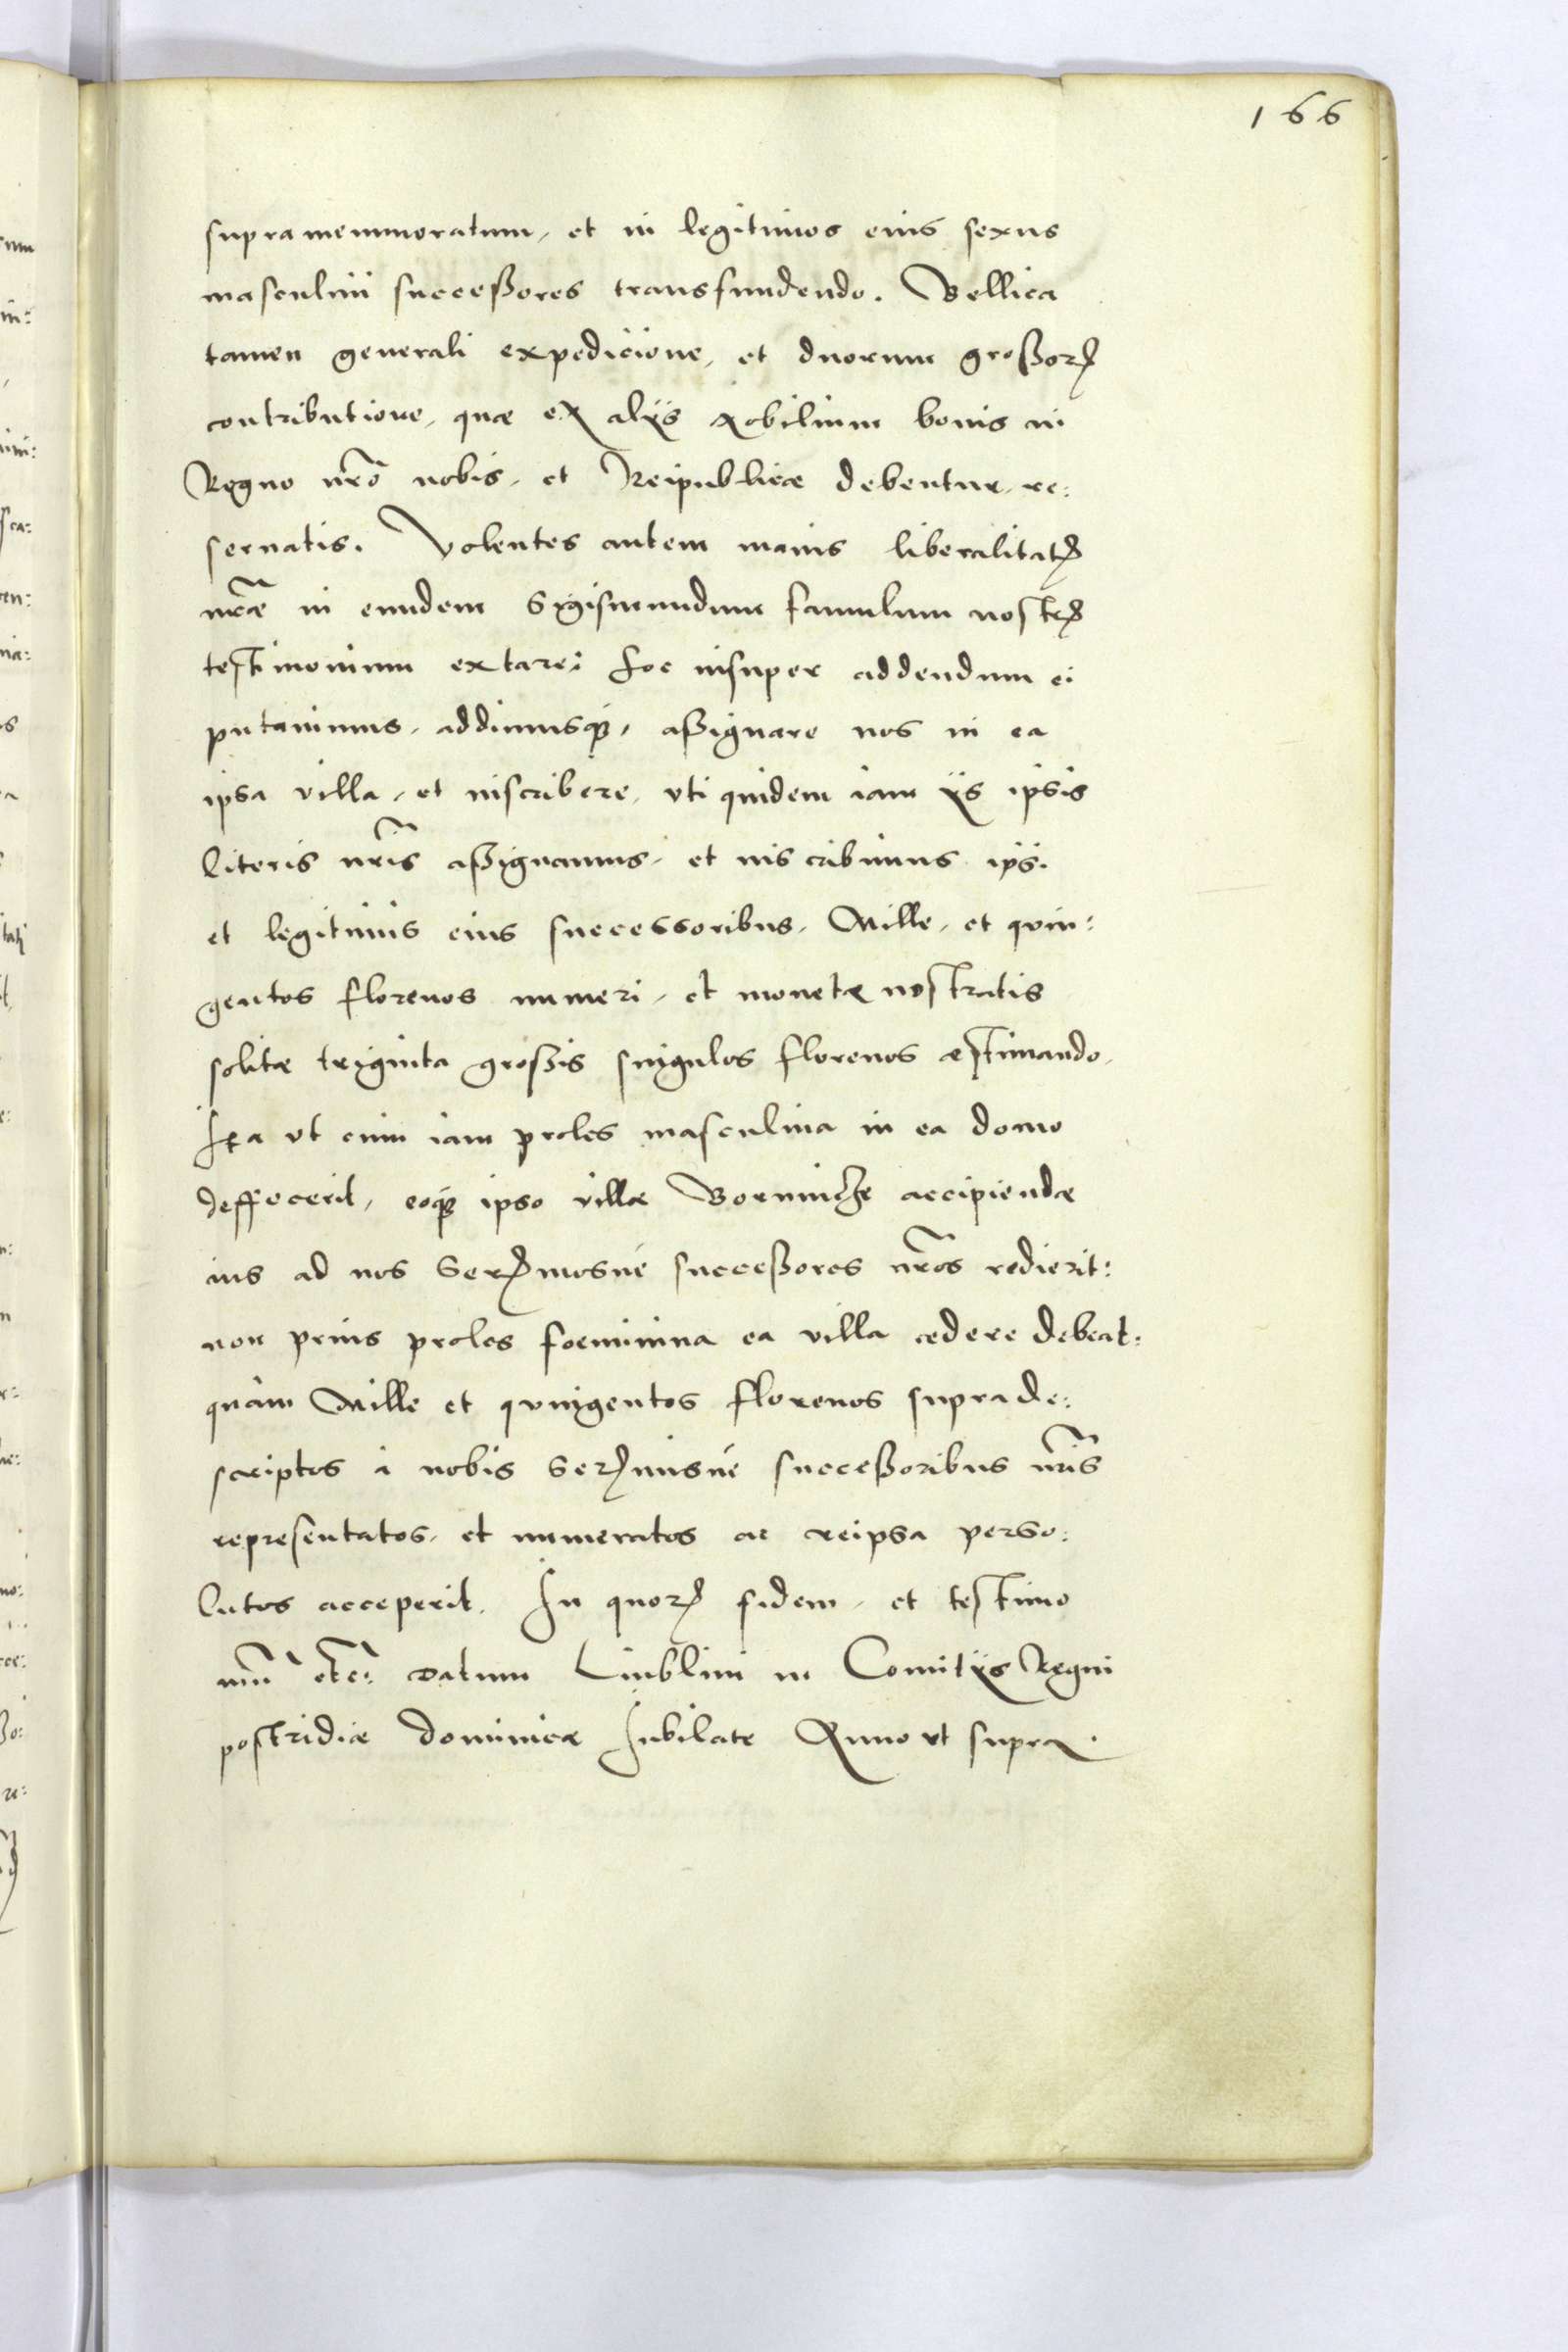 166
supramemmoratum, et in legitimos eius sexus
masculini successores transfundendo. Bellica
tamen generali expedicione, et duorum grossorꝫ
contributione, quæ ex alijs Nobilium bonis in
Regno nr̃o nobis, et Reipublicæ debentur, re:
seruatis. Volentes autem maius liberalitatꝫ
nr̃æ in eundem Sigismundum famulum nostrꝫ
testimonium extare: hoc insuper addendum ei
putauimus, addimusqꝫ, assignare nos in ea
ipsa villa, et inscribere, vti quidem iam ijs ipsis
literis nr̃is assignamus, et inscribimus ipsi.
et legitimis eius successoribus, Mille, et quin:
gentos florenos numeri, et monetæ nostratis
solitæ triginta grossis singulos florenos æstimando.
Ita vt cum iam proles masculina in ea domo
deffecerit, eoqꝫ ipso villæ Borunicze accipiendæ
ius ad nos Serꝫmosne successores nr̃os redierit:
non prius proles foeminina ea villa cedere debeat:
quàm Mille et quingentos florenos suprade:
scriptos à nobis Serꝫmisne successoribus nr̃is
representatos, et numeratos ac reipsa perso:
lutos acceperit. In quorꝫ fidem, et testimo
niũ etc̃: Datum Liublini in Comitijs Regni
postridiæ Dominicæ Iubilate Anno vt supra.